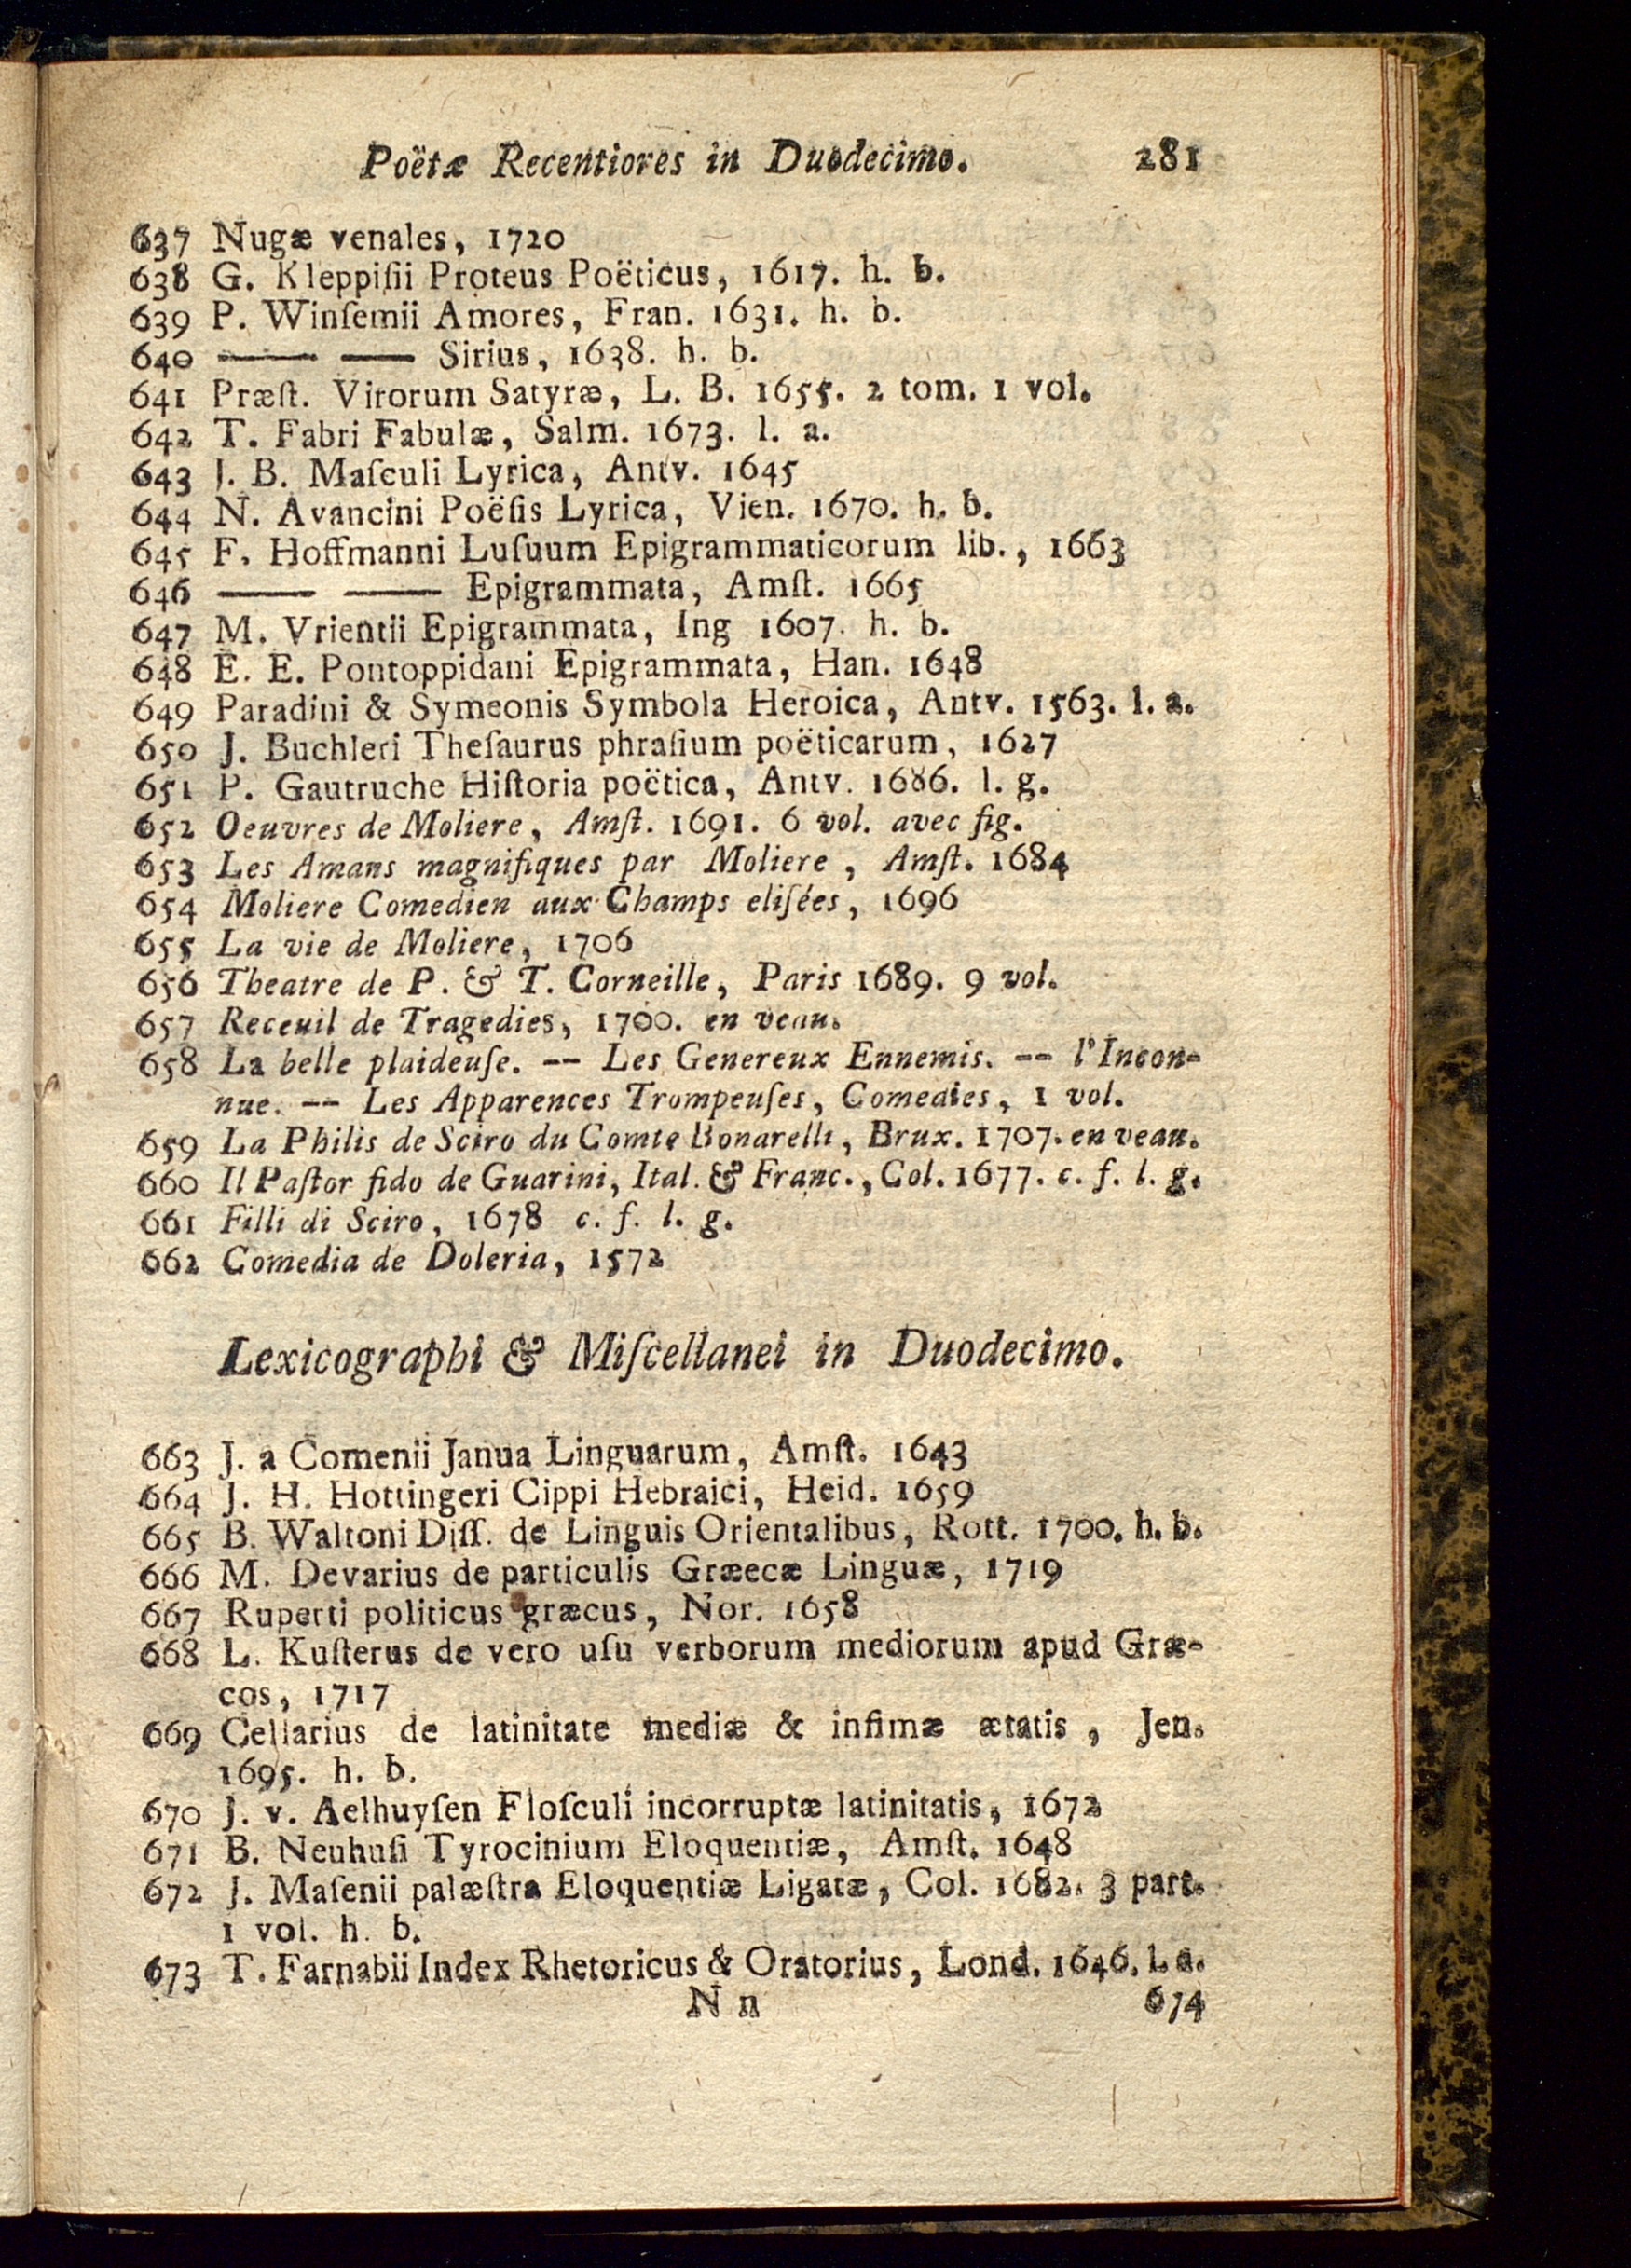 Poëtæ Recentiores in Duodecimo. 281
637 Nugæ venales, 1720
638 G. Kleppiſii Proteus Poëticus, 1617. h. b.
639 P. Winſemii Amores, Fran. 1631. h. b.
640 —— —— Sirius, 1638. h. b.
641 Præſt. Virorum Satyræ, L. B. 1655. 2 tom. 1 vol.
642 T. Fabri Fabulæ, Salm. 1673. l. a.
643 J. B. Maſculi Lyrica, Antv. 1645
644 N. Avancini Poëſis Lyrica, Vien. 1670. h. b.
645 F. Hoffmanni Luſuum Epigrammaticorum lib., 1663
646 —— —— Epigrammata, Amſt. 1665
647 M. Vrientii Epigrammata, Ing 1607. h. b.
648 E. E. Pontoppidani Epigrammata, Han. 1648
649 Paradini & Symeonis Symbola Heroica, Antv. 1563. l. a.
650 J. Buchleri Theſaurus phraſium poëticarum, 1627
651 P. Gautruche Hiſtoria poëtica, Antv. 1686. l. g.
652 Oeuvres de Moliere, Amſt. 1691. 6 vol. avec fig.
653 Les Amans magnifiques par Moliere, Amſt. 1684
654 Moliere Comedien aux Champs eliſées, 1696
655 La vie de Moliere, 1706
656 Theatre de P. & T. Corneille, Paris 1689. 9 vol.
657 Receuil de Tragedies, 1700. en veau.
658 La belle plaideuſe. -- Les Genereux Ennemis. -- l'Incon-
nue. -- Les Apparences Trompeuſes, Comedies, 1 vol.
659 La Philis de Sciro du Comte Bonarelli, Brux. 1707. en veau.
660 Il Paſtor fido de Guarini, Ital. & Franc., Col. 1677. c. f. l. g.
661 Filli di Sciro, 1678 c. f. l. g.
662 Comedia de Doleria, 1572
Lexicographi & Miſcellanei in Duodecimo.
663 J. a Comenii Janua Linguarum, Amſt. 1643
664 J. H. Hottingeri Cippi Hebraici, Heid. 1659
665 B. Waltoni Diſſ. de Linguis Orientalibus, Rott. 1700. h. b.
666 M. Devarius de particulis Græcæ Linguæ, 1719
667 Ruperti politicus græcus, Nor. 1658
668 L. Kuſterus de vero uſu verborum mediorum apud Græ-
cos, 1717
669 Cellarius de latinitate mediæ & infimæ ætatis, Jen.
1695. h. b.
670 J. v. Aelhuyſen Floſculi incorruptæ latinitatis, 1672
671 B. Neuhuſi Tyrocinium Eloquentiæ, Amſt. 1648
672 J. Maſenii palæſtra Eloquentiæ Ligatæ, Col. 1682. 3 part.
1 vol. h. b.
673 T. Farnabii Index Rhetoricus & Oratorius, Lond. 1646. l. a.
N n 674